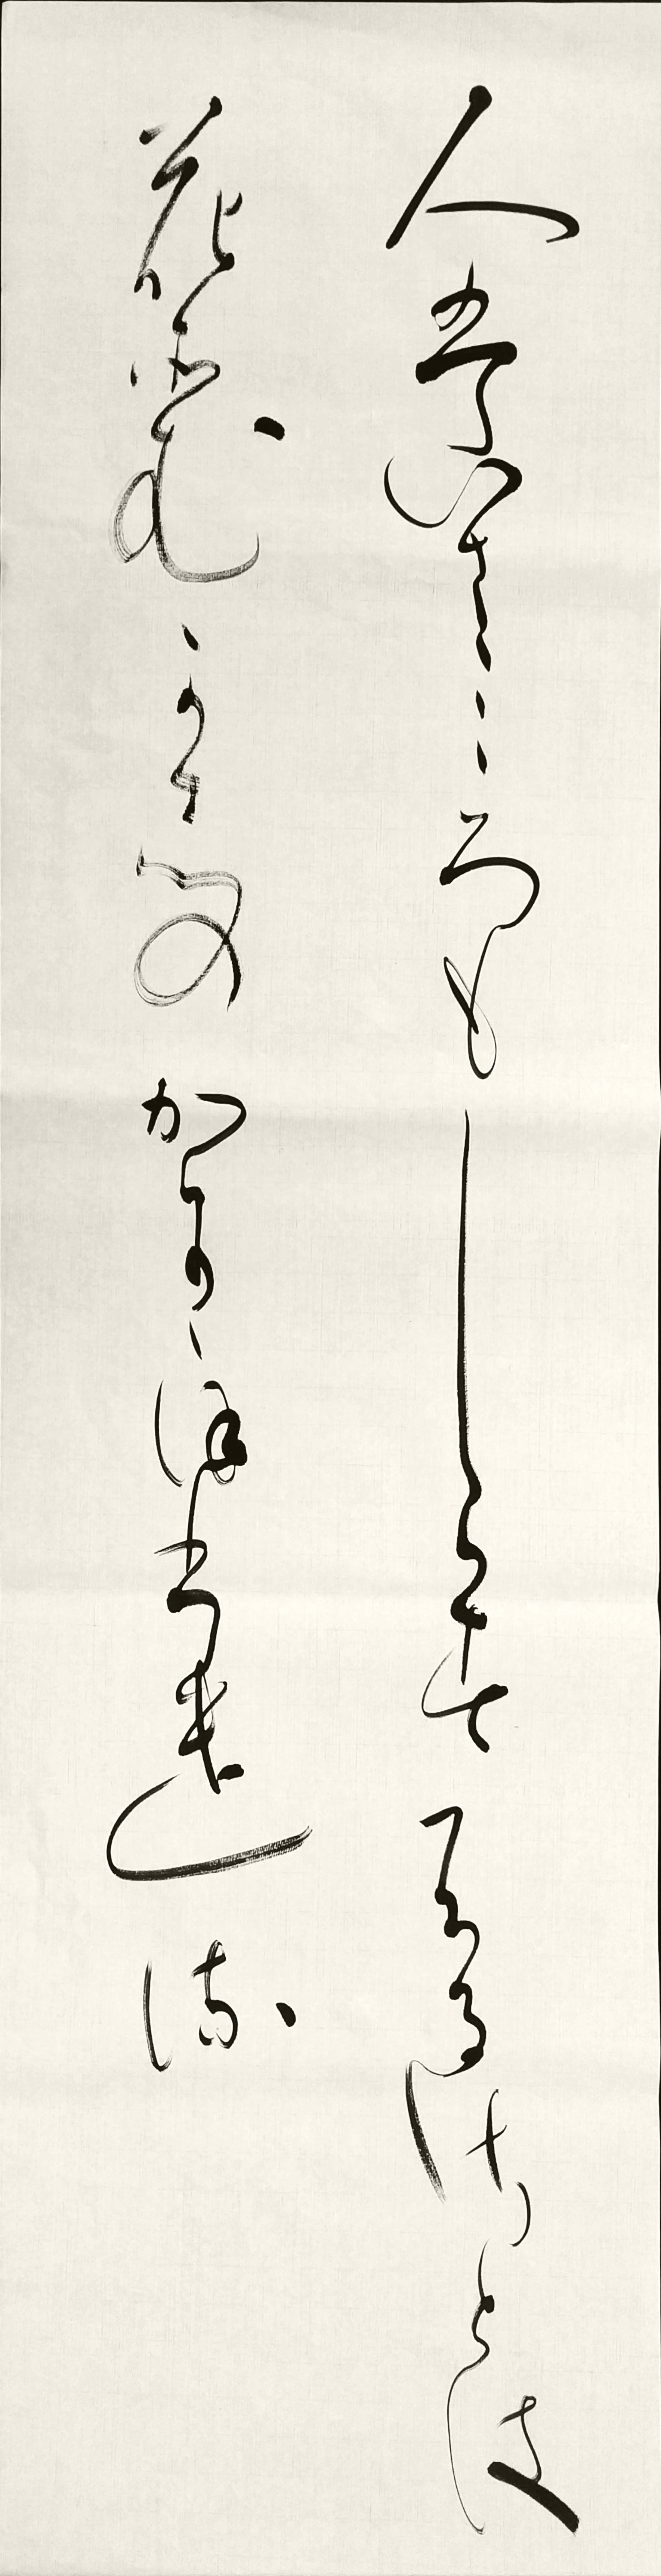 人はいさこころもしらすふるさとは
花そむかしのかにゝほひける